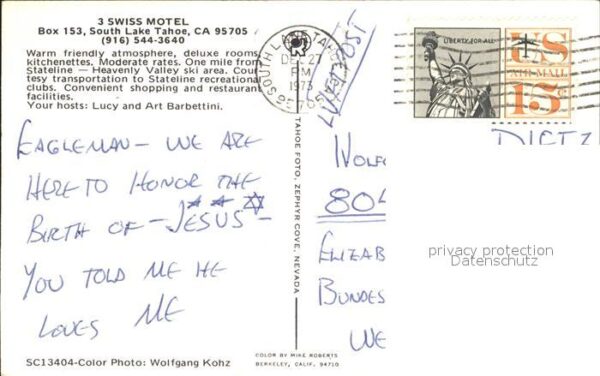 3 SWISS MOTEL
Box 153, South Lake Tahoe, CA 95705
(916) 544-3640
Warm friendly atmosphere, deluxe rooms,
kitchenettes. Moderate rates. One mile from
Stateline — Heavenly Valley ski area. Cour-
tesy transportation to Stateline recreational
clubs. Convenient shopping and restaurant
facilities.
Your hosts: Lucy and Art Barbettini.
EAGLEMAN — WE ARE
HERE TO HONOR THE
BIRTH OF — JESUS —
YOU TOLD ME HE
LOVES ME
SC13404-Color Photo: Wolfgang Kohz
TAHOE FOTO, ZEPHYR COVE, NEVADA
COLOR BY MIKE ROBERTS
BERKELEY, CALIF. 94710
SOUTH LAKE TAHOE
DEC 27
PM
1973
LUFTPOST
LIBERTY FOR ALL
US
AIR MAIL
15c
DIETZ
WOLFG
804
ELIZAB
BUNDES
WE
privacy protection
Datenschutz